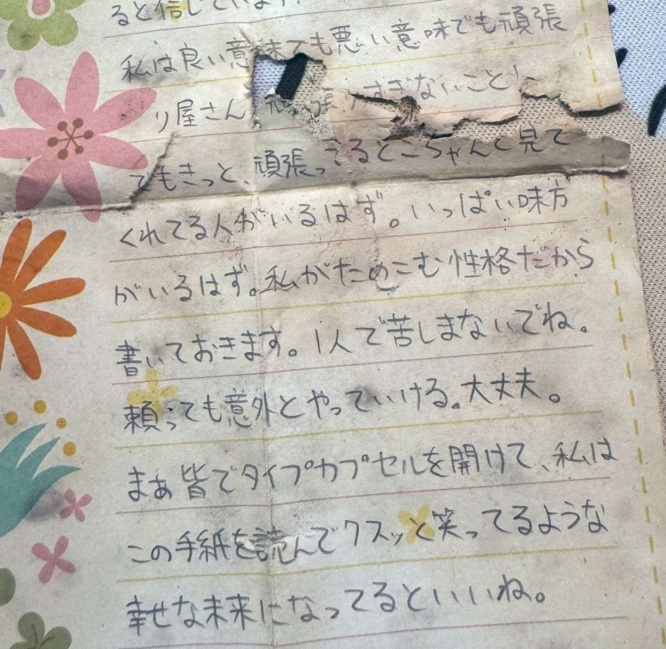 ると信じています。
私は良い意味でも悪い意味でも頑張
り屋さん すぎないこと!
でもきっと、頑張ってるとこちゃんと見て
くれてる人がいるはず。いっぱい味方
がいるはず。私がためこむ性格だから
書いておきます。1人で苦しまないでね。
頼っても意外とやっていける。大丈夫。
まぁ皆でタイプカプセルを開けて、私は
この手紙を読んでクスッと笑ってるような
幸せな未来になってるといいね。